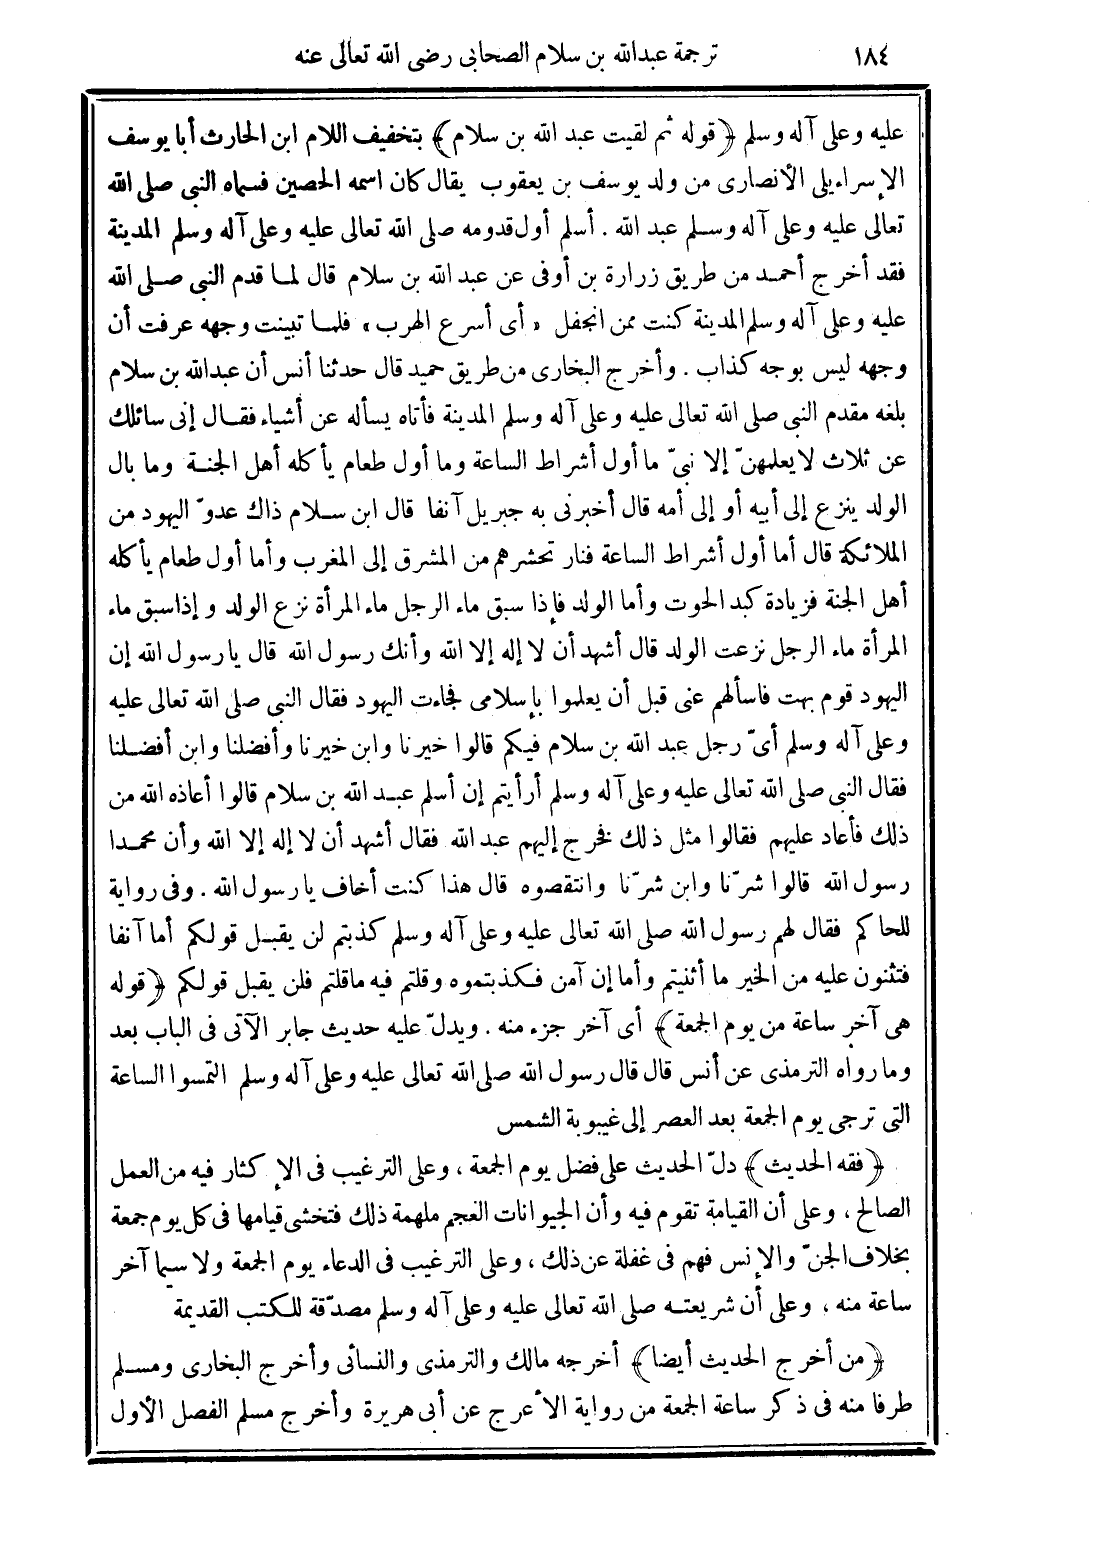 ١٨٤ ترجمة عبدالله بن سلام الصحابى رضى الله تعالى عنه
عليه وعلى آله وسلم ﴿قوله ثم لقيت عبد الله بن سلام﴾ بتخفيف اللام ابن الحارث أبا يوسف
الإسراءيلى الأنصارى من ولد يوسف بن يعقوب يقال كان اسمه الحصين فسماه النبي صلى الله
تعالى عليه وعلى آله وسلم عبد الله . أسلم أول قدومه صلى الله تعالى عليه وعلى آله وسلم المدينة
فقد أخرج أحمد من طريق زرارة بن أوفى عن عبد الله بن سلام قال لما قدم النبي صلى الله
عليه وعلى آله وسلم المدينة كنت ممن انجفل «أى أسرع الهرب» فلما تبينت وجهه عرفت أن
وجهه ليس بوجه كذاب . وأخرج البخارى من طريق حميد قال حدثنا أنس أن عبدالله بن سلام
بلغه مقدم النبي صلى الله تعالى عليه وعلى آله وسلم المدينة فأتاه يسأله عن أشياء فقال إنى سائلك
عن ثلاث لايعلمهنّ إلا نبىّ ما أول أشراط الساعة وما أول طعام يأكله أهل الجنة وما بال
الولد ينزع إلى أبيه أو إلى أمه قال أخبرنى به جبريل آنفا قال ابن سلام ذاك عدوّ اليهود من
الملائكة قال أما أول أشراط الساعة فنار تحشرهم من المشرق إلى المغرب وأما أول طعام يأكله
أهل الجنة فزيادة كبد الحوت وأما الولد فإذا سبق ماء الرجل ماء المرأة نزع الولد وإذاسبق ماء
المرأة ماء الرجل نزعت الولد قال أشهد أن لا إله إلا الله وأنك رسول الله قال يارسول الله إن
اليهود قوم بهت فاسألهم عنى قبل أن يعلموا بإسلامى فجاءت اليهود فقال النبي صلى الله تعالى عليه
وعلى آله وسلم أىّ رجل عبد الله بن سلام فيكم قالوا خيرنا وابن خيرنا وأفضلنا وابن أفضلنا
فقال النبي صلى الله تعالى عليه وعلى آله وسلم أرأيتم إن أسلم عبد الله بن سلام قالوا أعاذه الله من
ذلك فأعاد عليهم فقالوا مثل ذلك فخرج إليهم عبد الله فقال أشهد أن لا إله إلا الله وأن محمدا
رسول الله قالوا شرّنا وابن شرّنا وانتقصوه قال هذا كنت أخاف يارسول الله . وفى رواية
للحاكم فقال لهم رسول الله صلى الله تعالى عليه وعلى آله وسلم كذبتم لن يقبل قولكم أما آنفا
فتثنون عليه من الخير ما أثنيتم وأما إن آمن فكذبتموه وقلتم فيه ماقلتم فلن يقبل قولكم ﴿قوله
هى آخر ساعة من يوم الجمعة﴾ أى آخر جزء منه . ويدلّ عليه حديث جابر الآتى فى الباب بعد
وما رواه الترمذى عن أنس قال قال رسول الله صلى الله تعالى عليه وعلى آله وسلم التمسوا الساعة
التى ترجى يوم الجمعة بعد العصر إلى غيبوبة الشمس
﴿فقه الحديث﴾ دلّ الحديث على فضل يوم الجمعة ، وعلى الترغيب فى الإكثار فيه من العمل
الصالح ، وعلى أن القيامة تقوم فيه وأن الحيوانات العجم ملهمة ذلك فتخشى قيامها فى كل يوم جمعة
بخلاف الجنّ والإنس فهم فى غفلة عن ذلك ، وعلى الترغيب فى الدعاء يوم الجمعة ولاسيما آخر
ساعة منه ، وعلى أن شريعته صلى الله تعالى عليه وعلى آله وسلم مصدّقة للكتب القديمة
﴿من أخرج الحديث أيضا﴾ أخرجه مالك والترمذى والنسائى وأخرج البخارى ومسلم
طرفا منه فى ذكر ساعة الجمعة من رواية الأعرج عن أبى هريرة وأخرج مسلم الفصل الأول